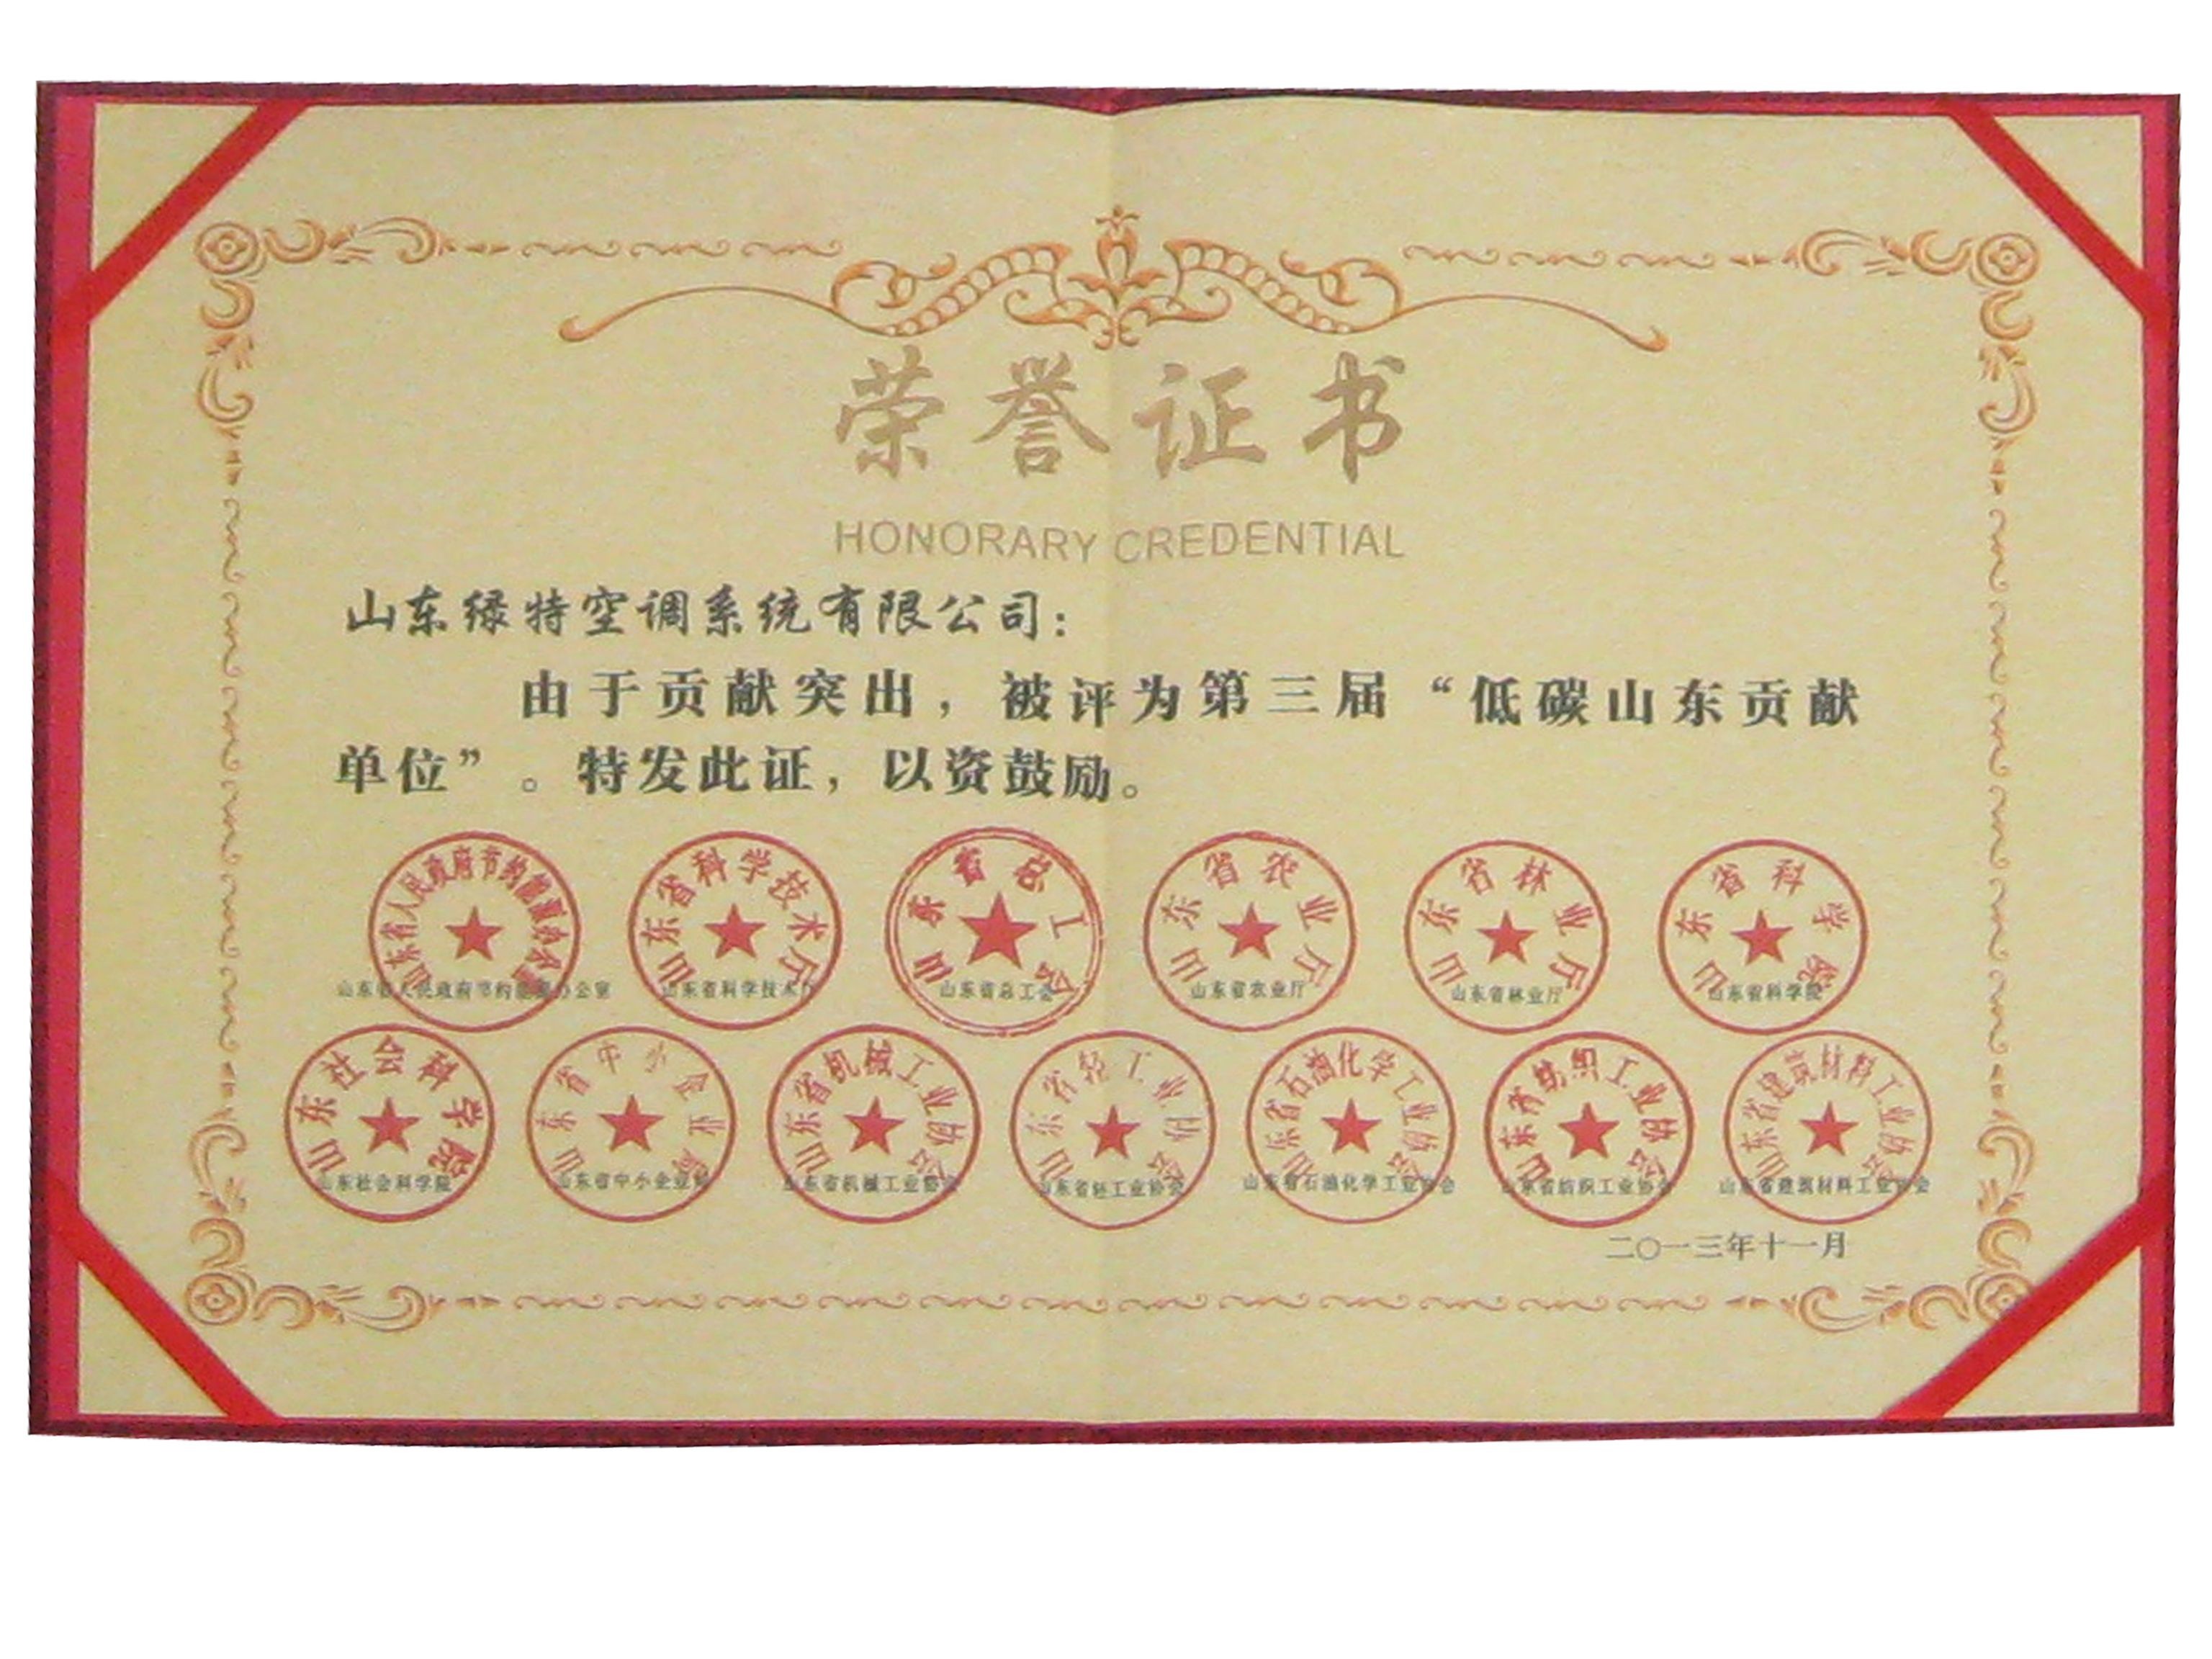 荣誉证书
HONORARY CREDENTIAL
山东绿特空调系统有限公司：
由于贡献突出，被评为第三届“低碳山东贡献
单位”。特发此证，以资鼓励。
山东省人民政府节约能源办公室
山东省人民政府节约能源办公室
山东省科学技术厅
山东省科学技术厅
山东省总工会
山东省总工会
山东省农业厅
山东省农业厅
山东省林业厅
山东省林业厅
山东省科学院
山东省科学院
山东社会科学院
山东社会科学院
山东省中小企业局
山东省中小企业局
山东省机械工业协会
山东省机械工业协会
山东省轻工业协会
山东省轻工业协会
山东省石油化学工业协会
山东省石油化学工业协会
山东省纺织工业协会
山东省纺织工业协会
山东省建筑材料工业协会
山东省建筑材料工业协会
二〇一三年十一月